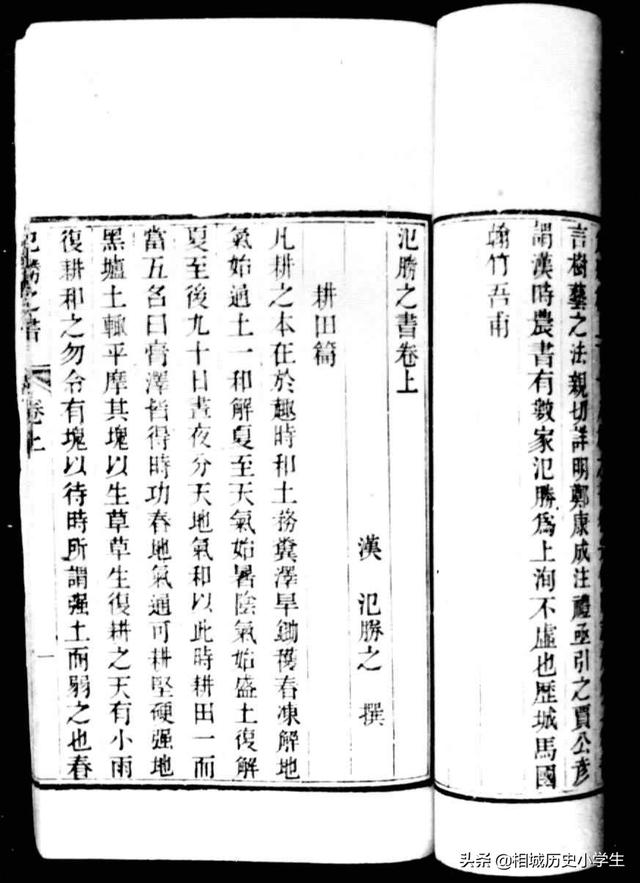 言樹藝之法親切詳明鄭康成注禮亟引之賈公彥
謂漢時農書有數家氾勝爲上洵不虛也歷城馬國
翰竹吾甫
氾勝之書卷上
漢 氾勝之 撰
耕田篇
凡耕之本在於趣時和土務糞澤旱鋤穫春凍解地
氣始通土一和解夏至天氣始暑陰氣始盛土復解
夏至後九十日晝夜分天地氣和以此時耕田一而
當五名曰膏澤皆得時功春地氣通可耕堅硬强地
黑壚土輒平摩其塊以生草草生復耕之天有小雨
復耕和之勿令有塊以待時所謂强土而弱之也春
氾勝之書 卷上 一
头条 @相城历史小学生